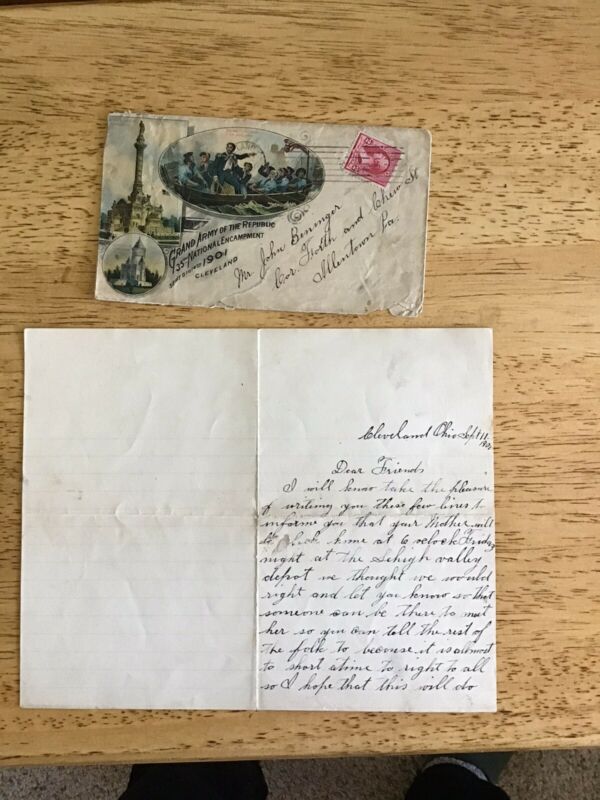 GRAND ARMY OF THE REPUBLIC
35th NATIONAL ENCAMPMENT
1901
CLEVELAND
Mr. John Beninger
Cor. Forth and Chew St
Allentown Pa.
Cleveland Ohio Sept 11
Dear Friends
I will know take the pleasure
of writing you these few lines to
informe you that your Mother will
be back home at 6 oclock Friday
night at the Lehigh valley
depot we thought we would
right and let you know so that
someone can be there to meet
her so you can tell the rest of
the folk to because it is almost
to short atime to right to all
so I hope that this will do